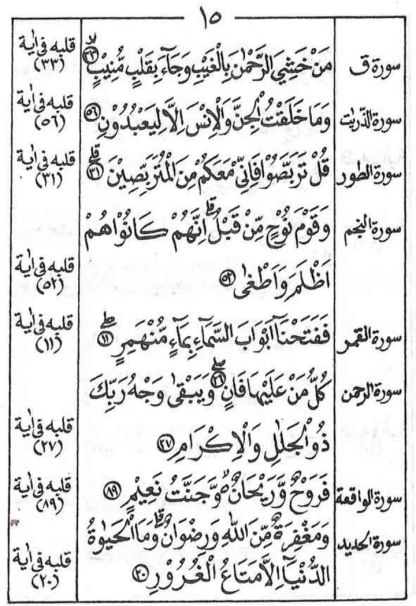 ١٥
سورة ق مَنْ خَشِيَ الرَّحْمٰنَ بِالْغَيْبِ وَجَآءَ بِقَلْبٍ مُّنِيْبٍ ٣٣ قلبه فى اية (٣٣)
سورة الذريت وَمَا خَلَقْتُ الْجِنَّ وَالْاِنْسَ اِلَّا لِيَعْبُدُوْنِ ٥٦ قلبه فى اية (٥٦)
سورة الطور قُلْ تَرَبَّصُوْا فَاِنِّيْ مَعَكُمْ مِنَ الْمُتَرَبِّصِيْنَ ٣١ قلبه فى اية (٣١)
سورة النجم وَقَوْمَ نُوْحٍ مِّنْ قَبْلُ اِنَّهُمْ كَانُوْا هُمْ
اَظْلَمَ وَاَطْغٰى ٥٢ قلبه فى اية (٥٢)
سورة القمر فَفَتَحْنَآ اَبْوَابَ السَّمَآءِ بِمَآءٍ مُّنْهَمِرٍ ١١ قلبه فى اية (١١)
سورة الرحمن كُلُّ مَنْ عَلَيْهَا فَانٍ ٢٦ وَيَبْقٰى وَجْهُ رَبِّكَ
ذُو الْجَلٰلِ وَالْاِكْرَامِ ٢٧ قلبه فى اية (٢٧)
سورة الواقعة فَرَوْحٌ وَّرَيْحَانٌ وَّجَنَّتُ نَعِيْمٍ ٨٩ قلبه فى اية (٨٩)
سورة الحديد وَمَغْفِرَةٌ مِّنَ اللّٰهِ وَرِضْوَانٌ وَمَا الْحَيٰوةُ
الدُّنْيَآ اِلَّا مَتَاعُ الْغُرُوْرِ ٢٠ قلبه فى اية (٢٠)